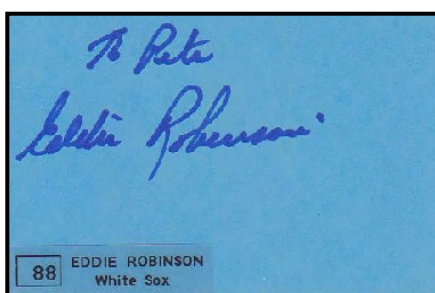 To Pete
Eddie Robinson
88 EDDIE ROBINSON
White Sox